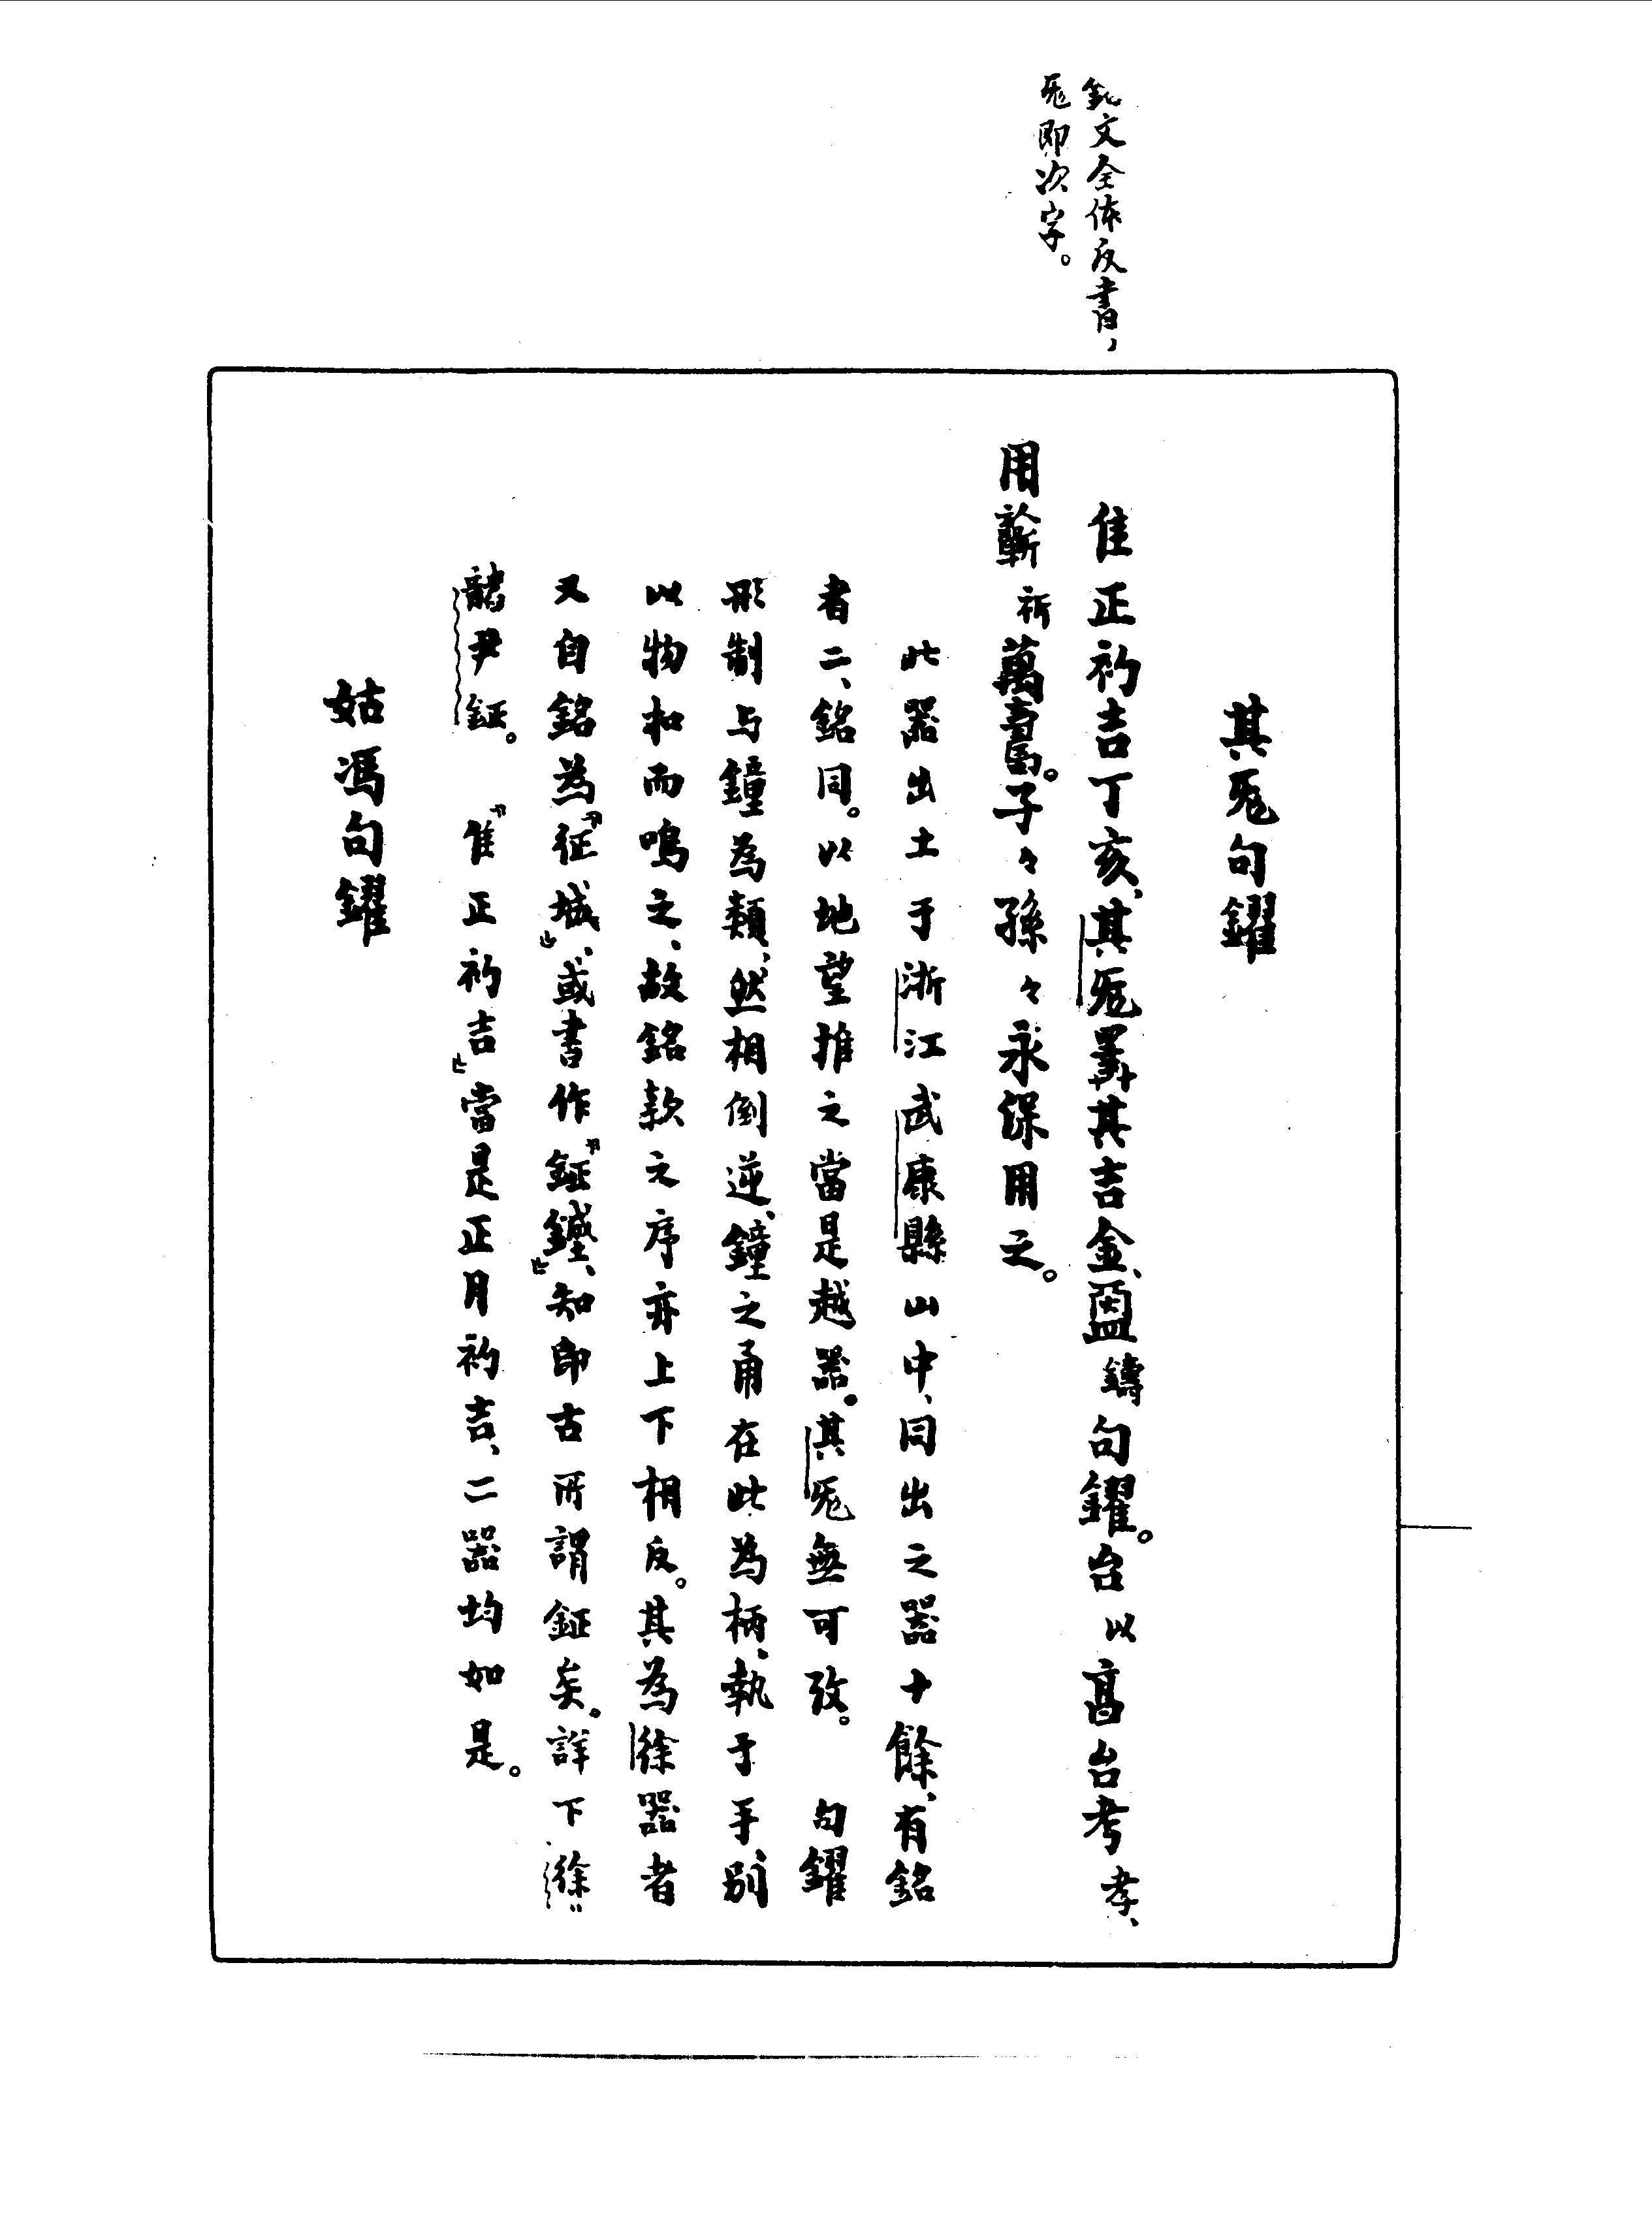 銘文全体反書，
㒫即次字。
其㒫句鑃
隹正礿吉丁亥，其㒫𢍰其吉金，𥂴鑄句鑃。台以亯台考孝、
用𣄨祈萬壽。子々孫々永保用之。
此器出土于浙江武康縣山中，同出之器十餘，有銘
者二，銘同。以地望推之當是越器。其㒫無可攷。　句鑃
形制与鐘為類，然相倒逆，鐘之甬在此為柄，執于手，别
以物扣而鳴之，故銘款之序亦上下相反。其為徐器者
又自銘為『征城』，或書作『鉦鋮』，知即古所謂鉦矣。詳下徐
䣄尹鉦。　『隹正礿吉』當是正月礿吉，二器均如是。
姑馮句鑃